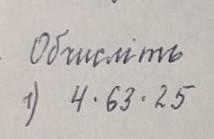 Обчисліть
1) 4·63·25